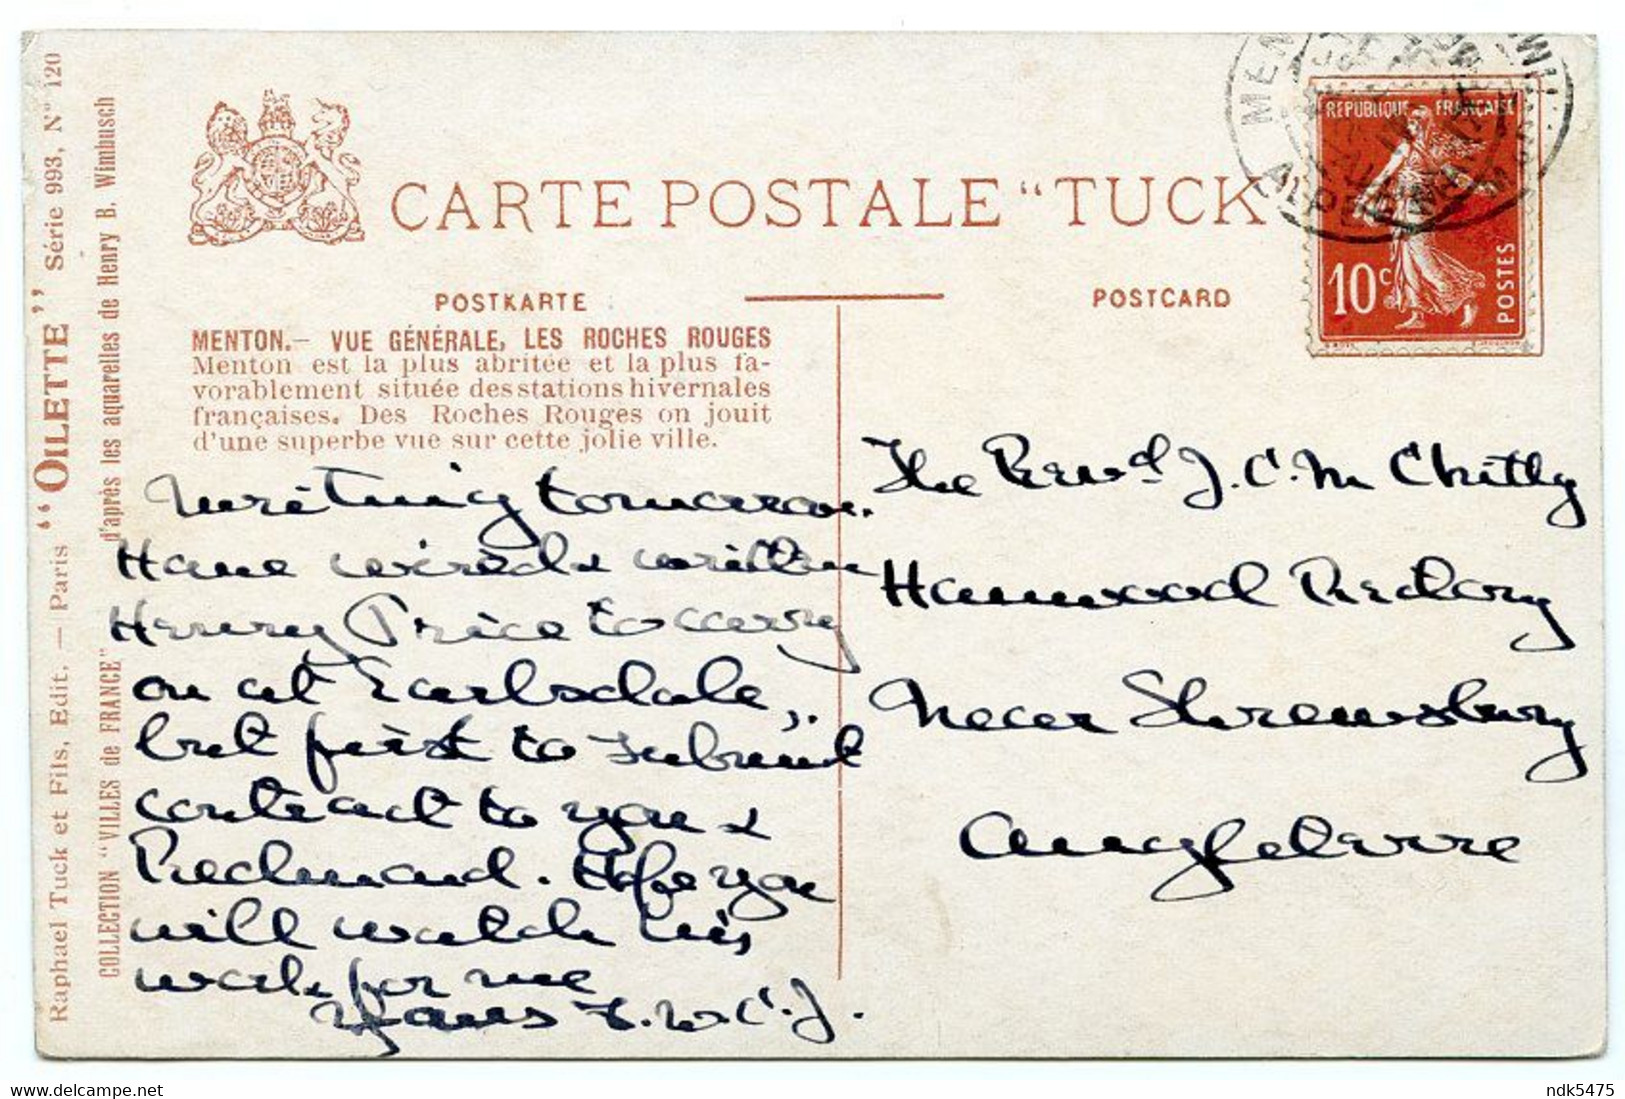 CARTE POSTALE "TUCK
REPUBLIQUE FRANÇAISE
10c
POSTES
MEN
ALPES
POSTKARTE
POSTCARD
MENTON.— VUE GÉNÉRALE, LES ROCHES ROUGES
Menton est la plus abritée et la plus fa-
vorablement située des stations hivernales
françaises. Des Roches Rouges on jouit
d'une superbe vue sur cette jolie ville.
Raphael Tuck et Fils, Edit. — Paris "OILETTE" Série 993, N° 120
COLLECTION "VILLES de FRANCE" d'après les aquarelles de Henry B. Wimbusch
Writing tomorrow.
Have wired & written
Henry Price to carry
on at Earlsdale,
but first to submit
contract to you &
Redmand. Hope you
will watch his
work for me
Yours F.W.C.J.
The Revd J.C.M Chitty
Hanwood Rectory
Near Shrewsbury
Angleterre
ndk5475